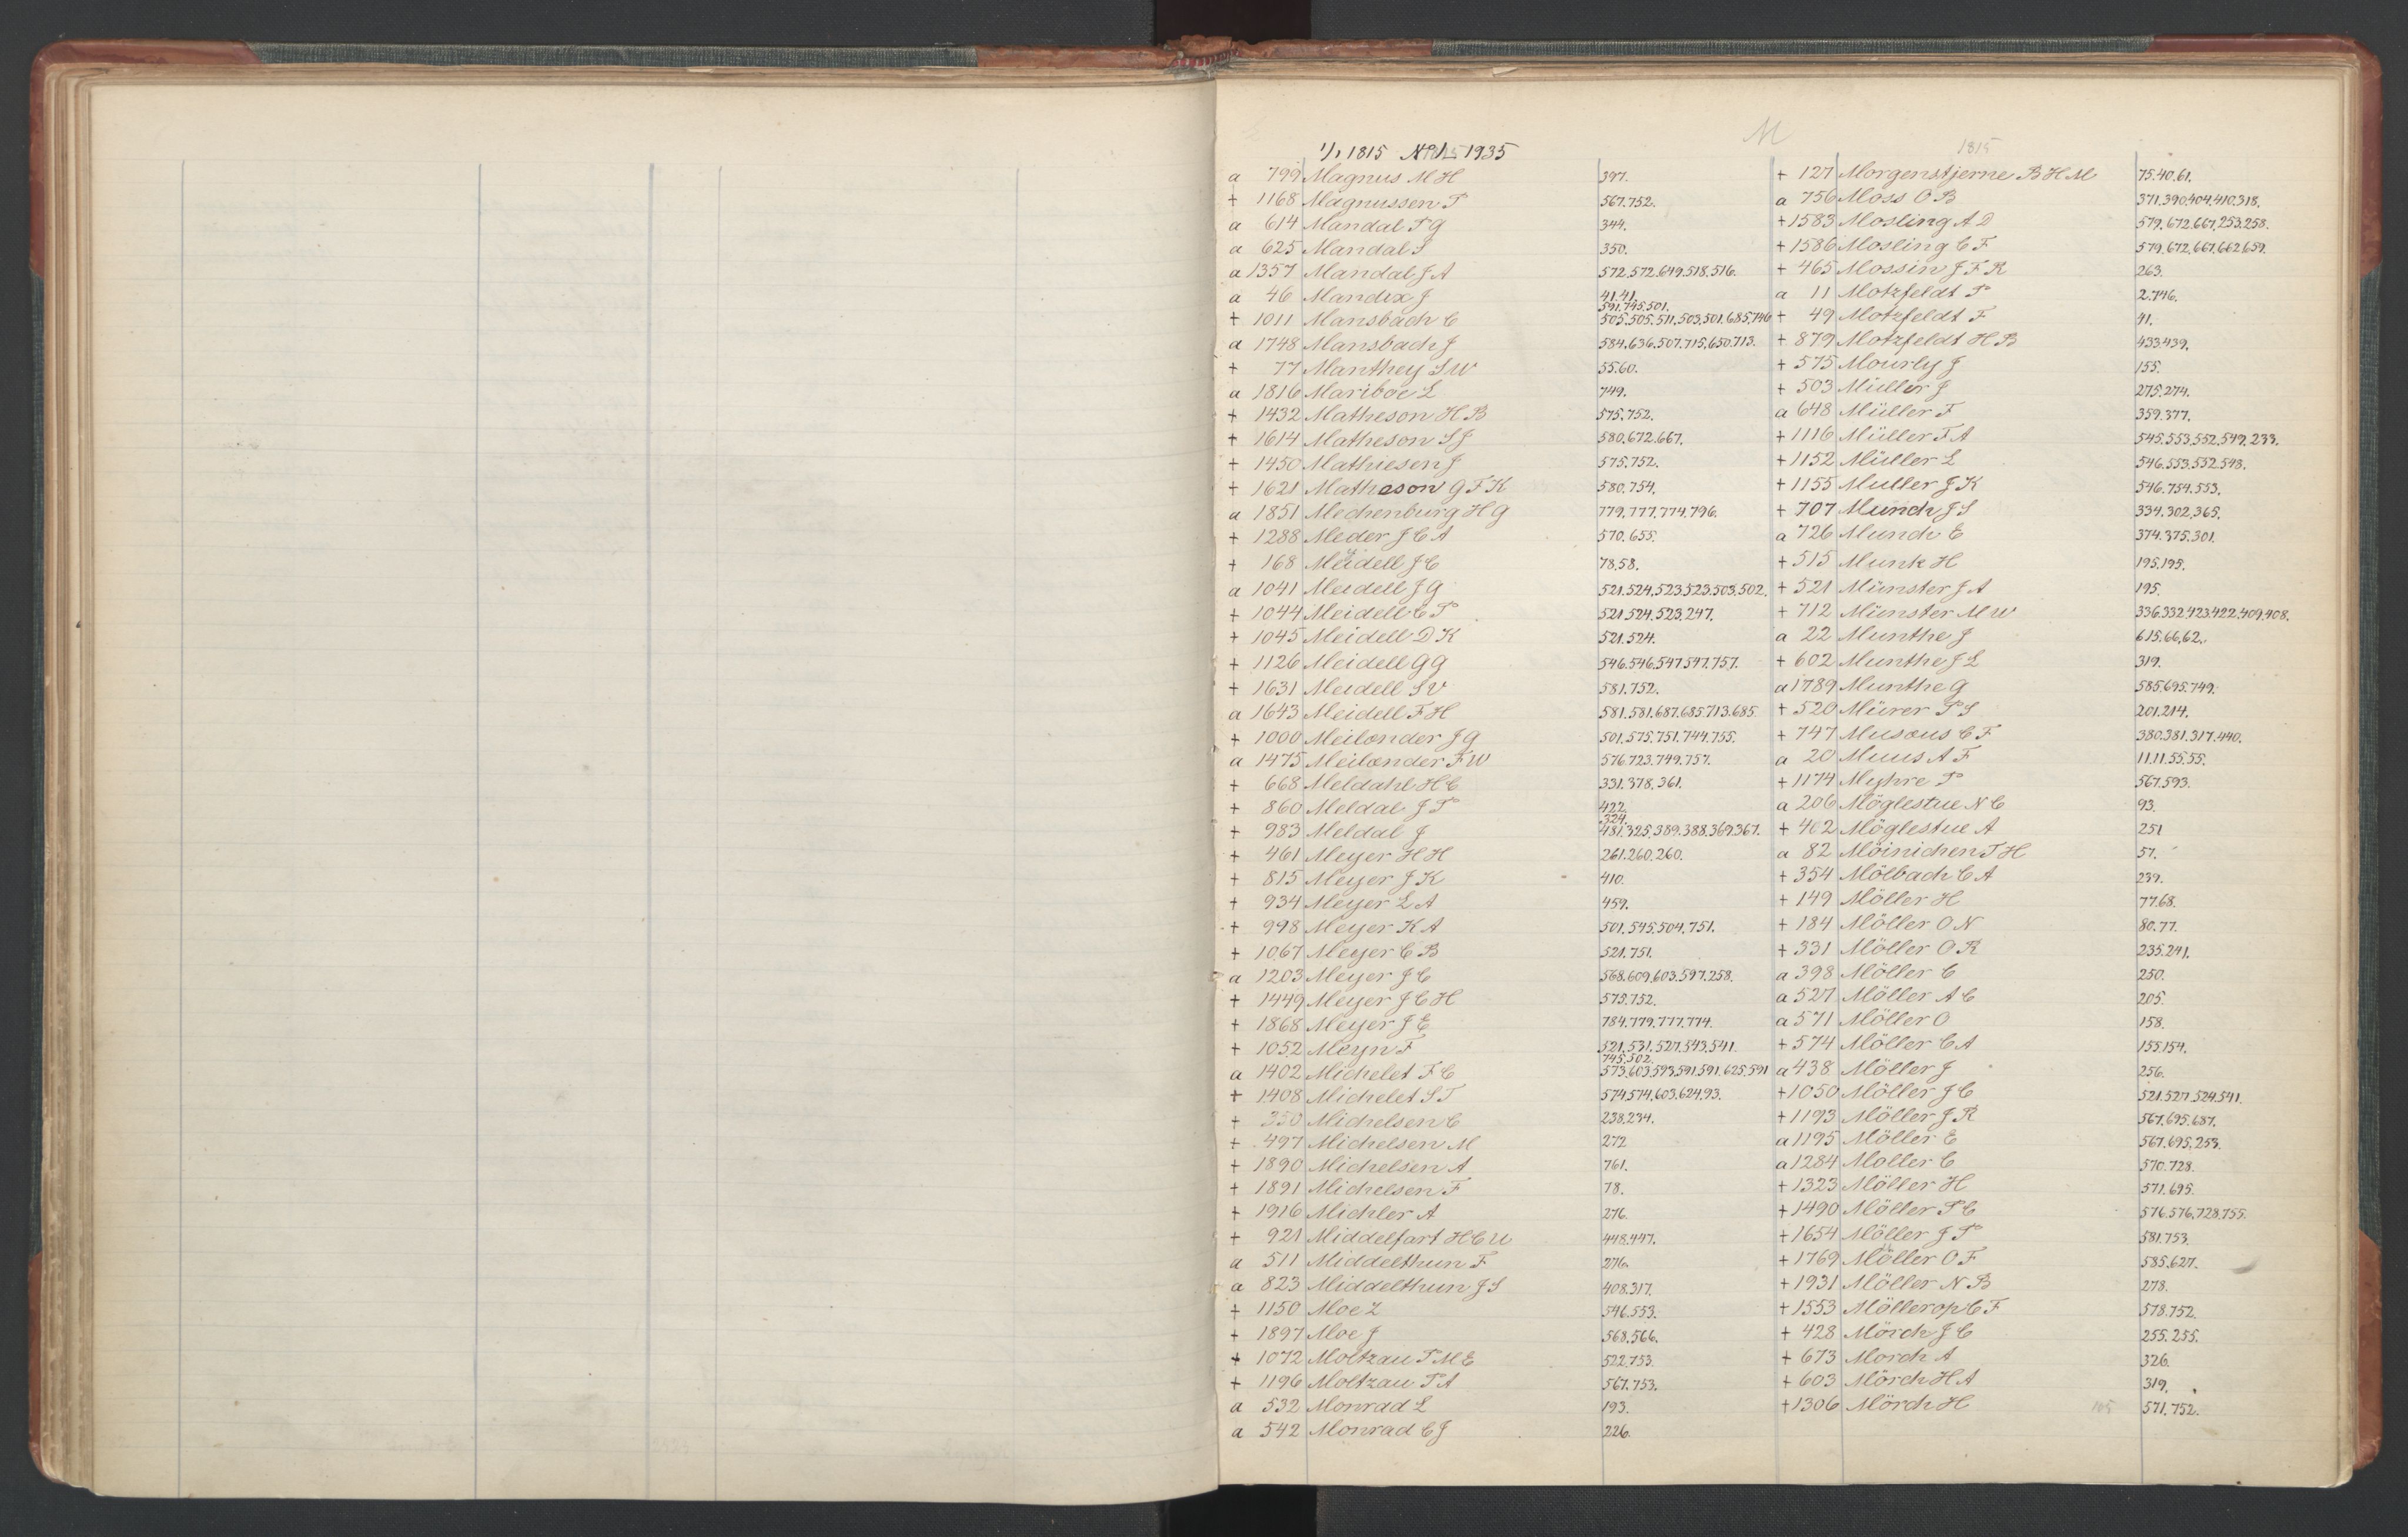 M
1/1 1815 No 1 1935
1815
a 799 Magnus M H 397.
+ 1168 Magnussen P 567.752.
a 614 Mandal P G 344.
a 625 Mandal S 350.
a 1357 Mandal J A 572.572.649.518.516.
a 46 Mandix J 41.41.
591.745.501.
+ 1011 Mansbach C 505.505.511.503.501.685.746
a 1748 Mansbach J 584.636.507.715.650.713.
+ 77 Manthey S W 55.60.
a 1816 Mariboe L 749.
+ 1432 Matheson H B 575.752.
+ 1614 Matheson S J 580.672.667.
+ 1450 Mathiesen J 575.752.
+ 1621 Matheson G F K 580.754.
a 1851 Mechenburg H G 779.777.774.796.
+ 1288 Meder J C A 570.655.
+ 168 Meidell J C 78.58.
a 1041 Meidell J G 521.524.523.523.503.502.
+ 1044 Meidell C P 521.524.523.247.
+ 1045 Meidell D K 521.524.
+ 1126 Meidell G G 546.546.547.547.757.
+ 1631 Meidell S V 581.752.
a 1643 Meidell F H 581.581.687.685.713.685.
+ 1000 Meilænder J G 501.575.751.744.755.
a 1475 Meilænder F W 576.723.749.757.
+ 668 Meldahl H C 331.378.361.
+ 860 Meldal J P 422.
324.
+ 983 Meldal J 481.325.389.388.369.367.
+ 461 Meyer H H 261.260.260.
+ 815 Meyer J K 410.
+ 934 Meyer L A 459.
+ 998 Meyer K A 501.545.504.751.
+ 1067 Meyer C B 521.751.
a 1203 Meyer J C 568.609.603.597.258.
+ 1449 Meyer J C H 575.752.
+ 1868 Meyer J E 784.779.777.774.
+ 1052 Meyn F 521.531.527.543.541.
745.502.
a 1402 Michelet F C 573.603.593.591.591.625.591
+ 1408 Michelet S T 574.574.603.624.93.
+ 350 Michelsen C 238.234.
+ 497 Michelsen M 272
+ 1890 Michelsen A 761.
+ 1891 Michelsen F 78.
+ 1916 Michler A 276.
+ 921 Middelfart H C U 448.447.
a 511 Middelthun F 276.
a 823 Middelthun J S 408.317.
+ 1150 Moe Z 546.553.
+ 1897 Moe J 568.566.
+ 1072 Moltzau P M E 522.753.
+ 1196 Moltzau P A 567.753.
a 532 Monrad L 193.
a 542 Monrad C J 226.
+ 127 Morgenstjerne B H M 75.40.61.
a 756 Moss O B 371.390.404.410.318.
+ 1583 Mosling A D 579.672.667.253.258.
+ 1586 Mosling C F 579.672.667.662.659.
+ 465 Mossin J F R 263.
a 11 Motzfeldt P 2.746.
+ 49 Motzfeldt F 41.
+ 879 Motzfeldt H B 433.439.
+ 575 Mourly J 155.
+ 503 Müller J 275.274.
a 648 Müller F 359.377.
+ 1116 Müller F A 545.553.552.549.233.
+ 1152 Müller L 546.553.552.548.
+ 1155 Muller J K 546.754.553.
+ 707 Munch J S 334.302.365.
a 726 Munch E 374.375.301.
+ 515 Munk H 195.195.
+ 521 Münster J A 195.
+ 712 Münster M W 336.332.423.422.409.408.
a 22 Munthe J 615.66.62.
+ 602 Munthe J L 319.
a 1789 Munthe G 585.695.749.
+ 520 Mürer P S 201.214.
+ 747 Musæus C F 380.381.317.440.
a 20 Muus A F 11.11.55.55.
+ 1174 Myhre P 567.593.
a 206 Möglestue N C 93.
+ 402 Möglestue A 251
a 82 Möinichen P H 57.
+ 354 Mölbach C A 239.
+ 149 Möller H 77.68.
+ 184 Möller O N 80.77.
+ 331 Möller O R 235.241.
a 398 Möller C 250.
a 527 Möller A C 205.
a 571 Möller O 158.
+ 574 Möller C A 155.154.
a 438 Möller J 256.
+ 1050 Möller J C 521.527.524.541.
+ 1193 Möller J R 567.695.687.
a 1195 Möller E 567.695.253.
a 1284 Moller C 570.728.
+ 1323 Möller H 571.695.
+ 1490 Möller P C 576.576.728.755.
+ 1654 Möller J P 581.753.
+ 1769 Möller O F 585.627.
+ 1931 Möller N B 278.
+ 1553 Möllerop C F 578.752.
+ 428 Mörch J C 255.255.
+ 673 Morch A 326.
+ 603 Mörch H A 319.
+ 1306 Mörch H 571.752.
105